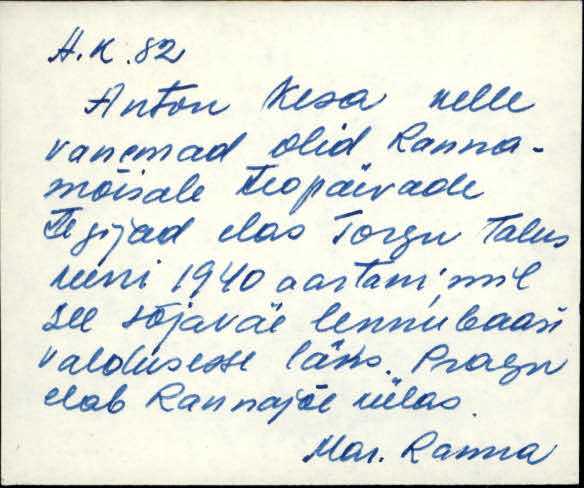 H.K. 82
Anton Kesa kelle
vanemad olid Ranna-
mõisale teopäivade
tegijad elas Torgu Talus
kuni 1940 aastani, mil
see sõjaväe lennubaasi
valdusesse läks. Praegu
elab Rannajõe külas.
Mar. Ranna